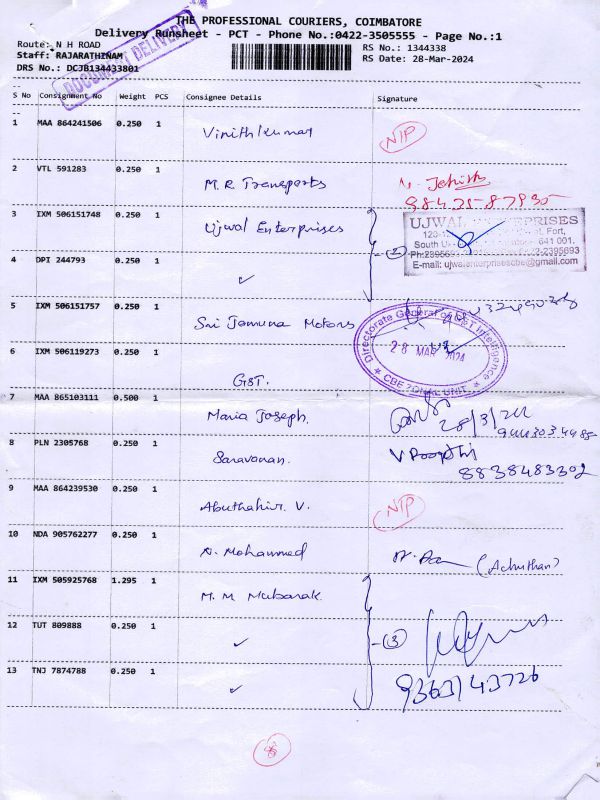 THE PROFESSIONAL COURIERS, COIMBATORE
Delivery Runsheet - PCT - Phone No.:0422-3505555 - Page No.:1
Route: N H ROAD
RS No.: 1344338
Staff: RAJARATHINAM
RS Date: 28-Mar-2024
DRS No.: DCJB134433801
DOCUMENT DELIVERY
S No Consignment No Weight PCS Consignee Details Signature
1 MAA 864241506 0.250 1 Vinithkumar NIP
2 VTL 591283 0.250 1 M.R. Transports
3 IXM 506151748 0.250 1 Ujwal Enterprises
UJWAL ENTERPRISES
Fort,
South 641 001.
E-mail: ujwalenterprisescbe@gmail.com
4 DPI 244793 0.250 1 ✓
5 IXM 506151757 0.250 1 Sri Jamuna Motors
6 IXM 506119273 0.250 1 GST.
Directorate General of GST Intelligence
28 MAR 2024
CBE ZONAL UNIT
7 MAA 865103111 0.500 1 Maria Joseph.
8 PLN 2305768 0.250 1 Saravanan.
8838483302
9 MAA 864239530 0.250 1 Abuthahir. V. NIP
10 NDA 905762277 0.250 1 N. Mohammed (Achuthan)
11 IXM 505925768 1.295 1 M. M Mubarak
12 TUT 809888 0.250 1 ✓ 3
13 TNJ 7874788 0.250 1 ✓
9363143726
8